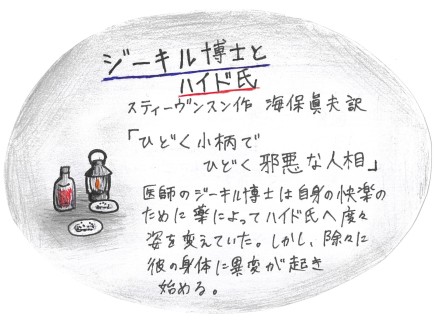 ジーキル博士と
ハイド氏
スティーヴンスン作 海保眞夫訳
「ひどく小柄で
ひどく邪悪な人相」
医師のジーキル博士は自身の快楽の
ために薬によってハイド氏へ度々
姿を変えていた。しかし、除々に
彼の身体に異変が起き
始める。